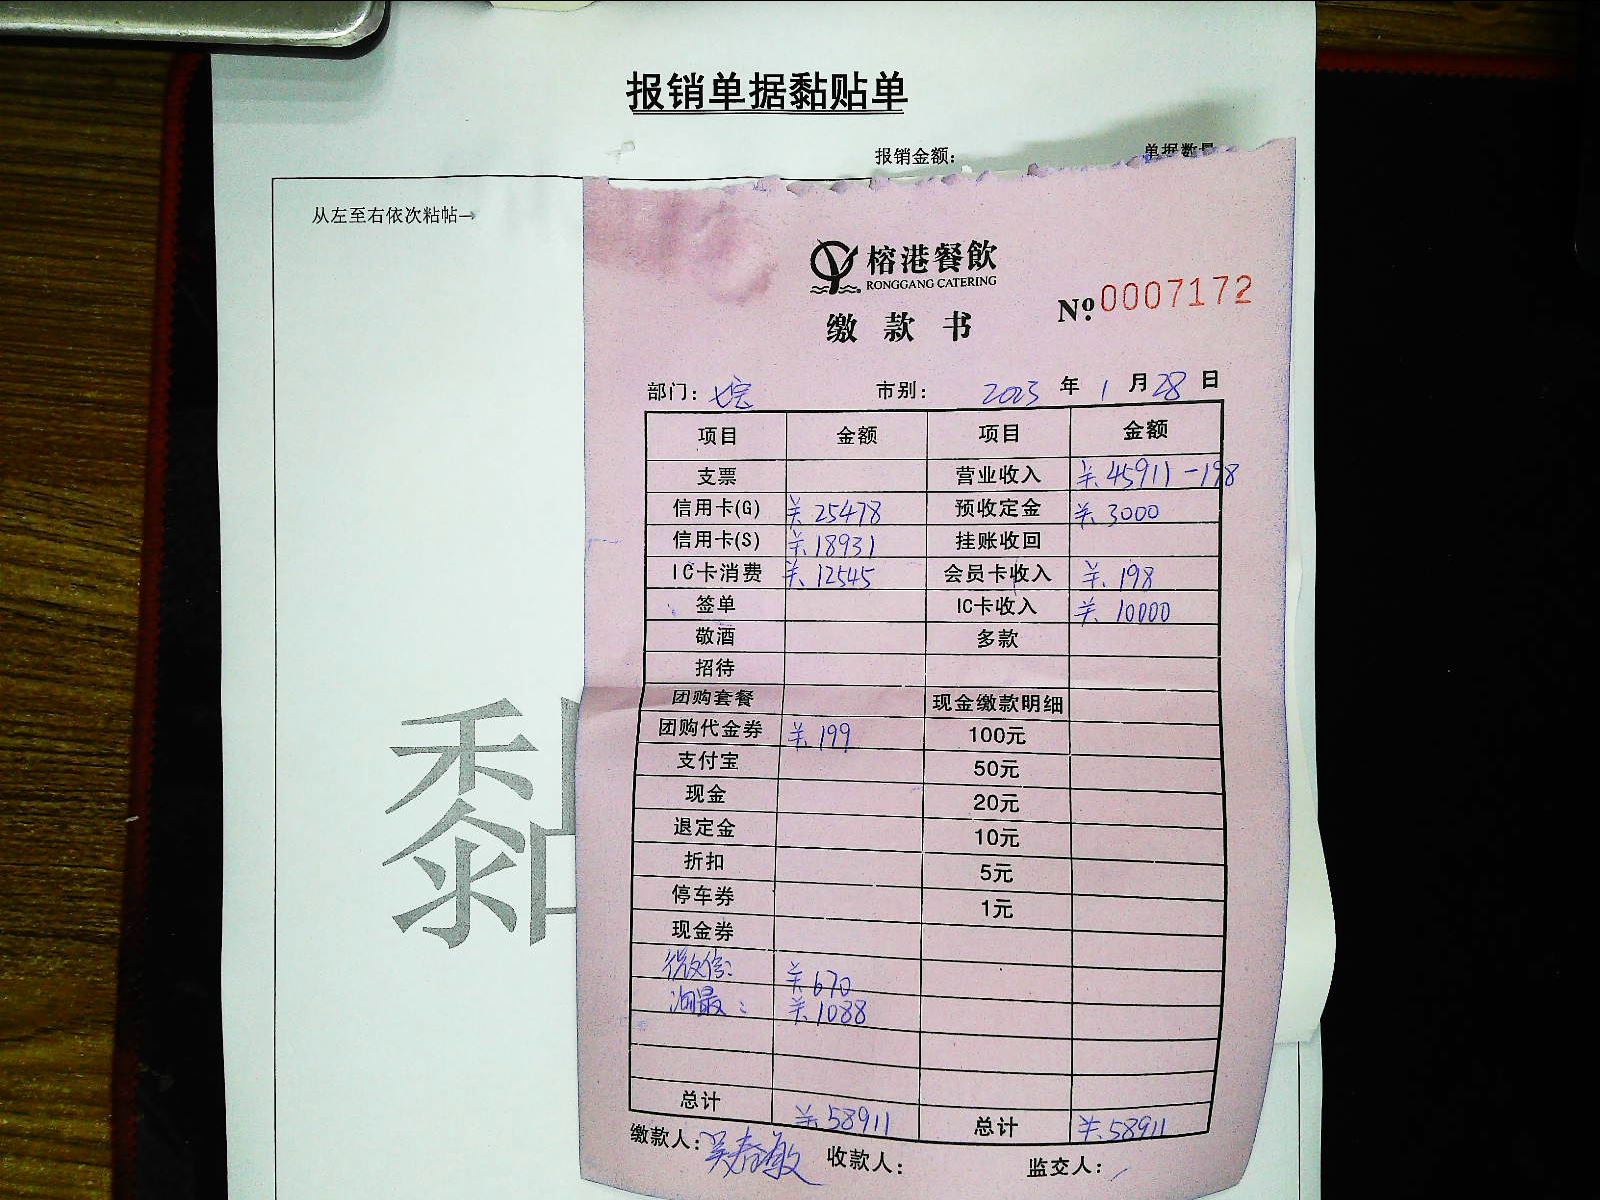 报销单据黏贴单
报销金额： 单据数量
从左至右依次粘帖→
榕港餐飲
RONGGANG CATERING
缴款书 №0007172
部门： 市别： 2023 年 1 月 28 日
项目 金额 项目 金额
支票 营业收入 ¥45911-198
信用卡(G) ¥25478 预收定金 ¥3000
信用卡(S) ¥18931 挂账收回
IC卡消费 ¥12545 会员卡收入 ¥198
签单 IC卡收入 ¥10000
敬酒 多款
招待
团购套餐 现金缴款明细
团购代金券 ¥199 100元
支付宝 50元
现金 20元
退定金 10元
折扣 5元
停车券 1元
现金券
微信： ¥670
¥1088
总计 ¥58911 总计 ¥58911
缴款人：吴春敏 收款人： 监交人：
黏